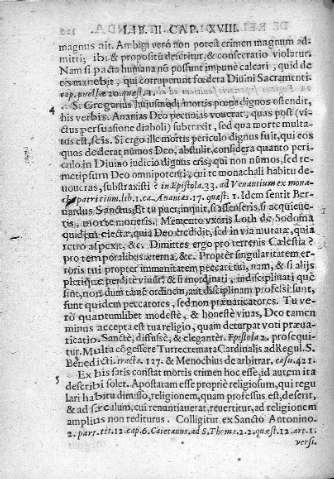 LIB. II CAP. XVIII.
magnus ait. Ambigi verò non potest crimen magnum admitti, ibi & propositũ deseritur, & consecratio violatur.
Nam si pacta humana nõ possunt impune calcari, quid de
eis manebit, qui corruperunt fœdera Divini Sacramenti.
cap.
4 S. Gregorius huiusmodi mortis pœna dignos ostendit,
his verbis. Ananias Deo pecunias voverat, quas post (victus persuasione diaboli) subtraxit, sed qua morte multatus est, scis. Si ergo ille mortis periculo dignus fuit, qui eos
quos dederat nũmos Deo, abstulit, considera quanto periculo in Divino iudicio dignus eris, qui non nũmos, sed temetipsum Deo omnipotenti, cui te monachali habitu devoveras, subtraxisti: in Epistola 33. ad Venantium ex monacho patritium. lib. 1. ca. Ananias. 17. quæst. 1. Idem sentit Bernardus Sanctus; Et tu
Memento uxoris Loth de Sodoma
quidem erectæ, quia Deo credidit, sed in via mutatæ, quia
retro aspexit, &c. Dimittes ergo pro terrenis Cælestia?
pro temporalibus æterna, &c. Propter singularitatem erroris tui propter immanitatem peccati tui, nam, & si alijs
sint, non dum tanẽ ordinem, aut disciplinam professi sunt,
sunt quidem peccatores, sed non prævaricatores. Tu verò quantumlibet modestè, & honestè vivas, Deo tamen
minus accepta est tua religio, quam deturpat voti prævaricatio. Sanctè, disertè, & eleganter. Epistola 2. prosequitur. Multa cõgessere Turrecremata Cardinalis ad Regul. S.
Benedicti. tract. 117. & Menochius de arbitrar. casu. 421.
5 Ex his satis constat mortis crimen hoc esse, id autem ita
describi solet. Apostatam esse propriè religiosum, qui regulari habitu dimisso, religionem, quam professus est, deserit,
& ad sæculum, cui renuntiaverat, revertitur, ad religionem
amplius non rediturus. Colligitur ex Sancto Antonino.
2. part. tit. 12. cap. 6. Caietanus, ad S. Thoma. 2. 2. quæst. 12. art. 1.
versi.